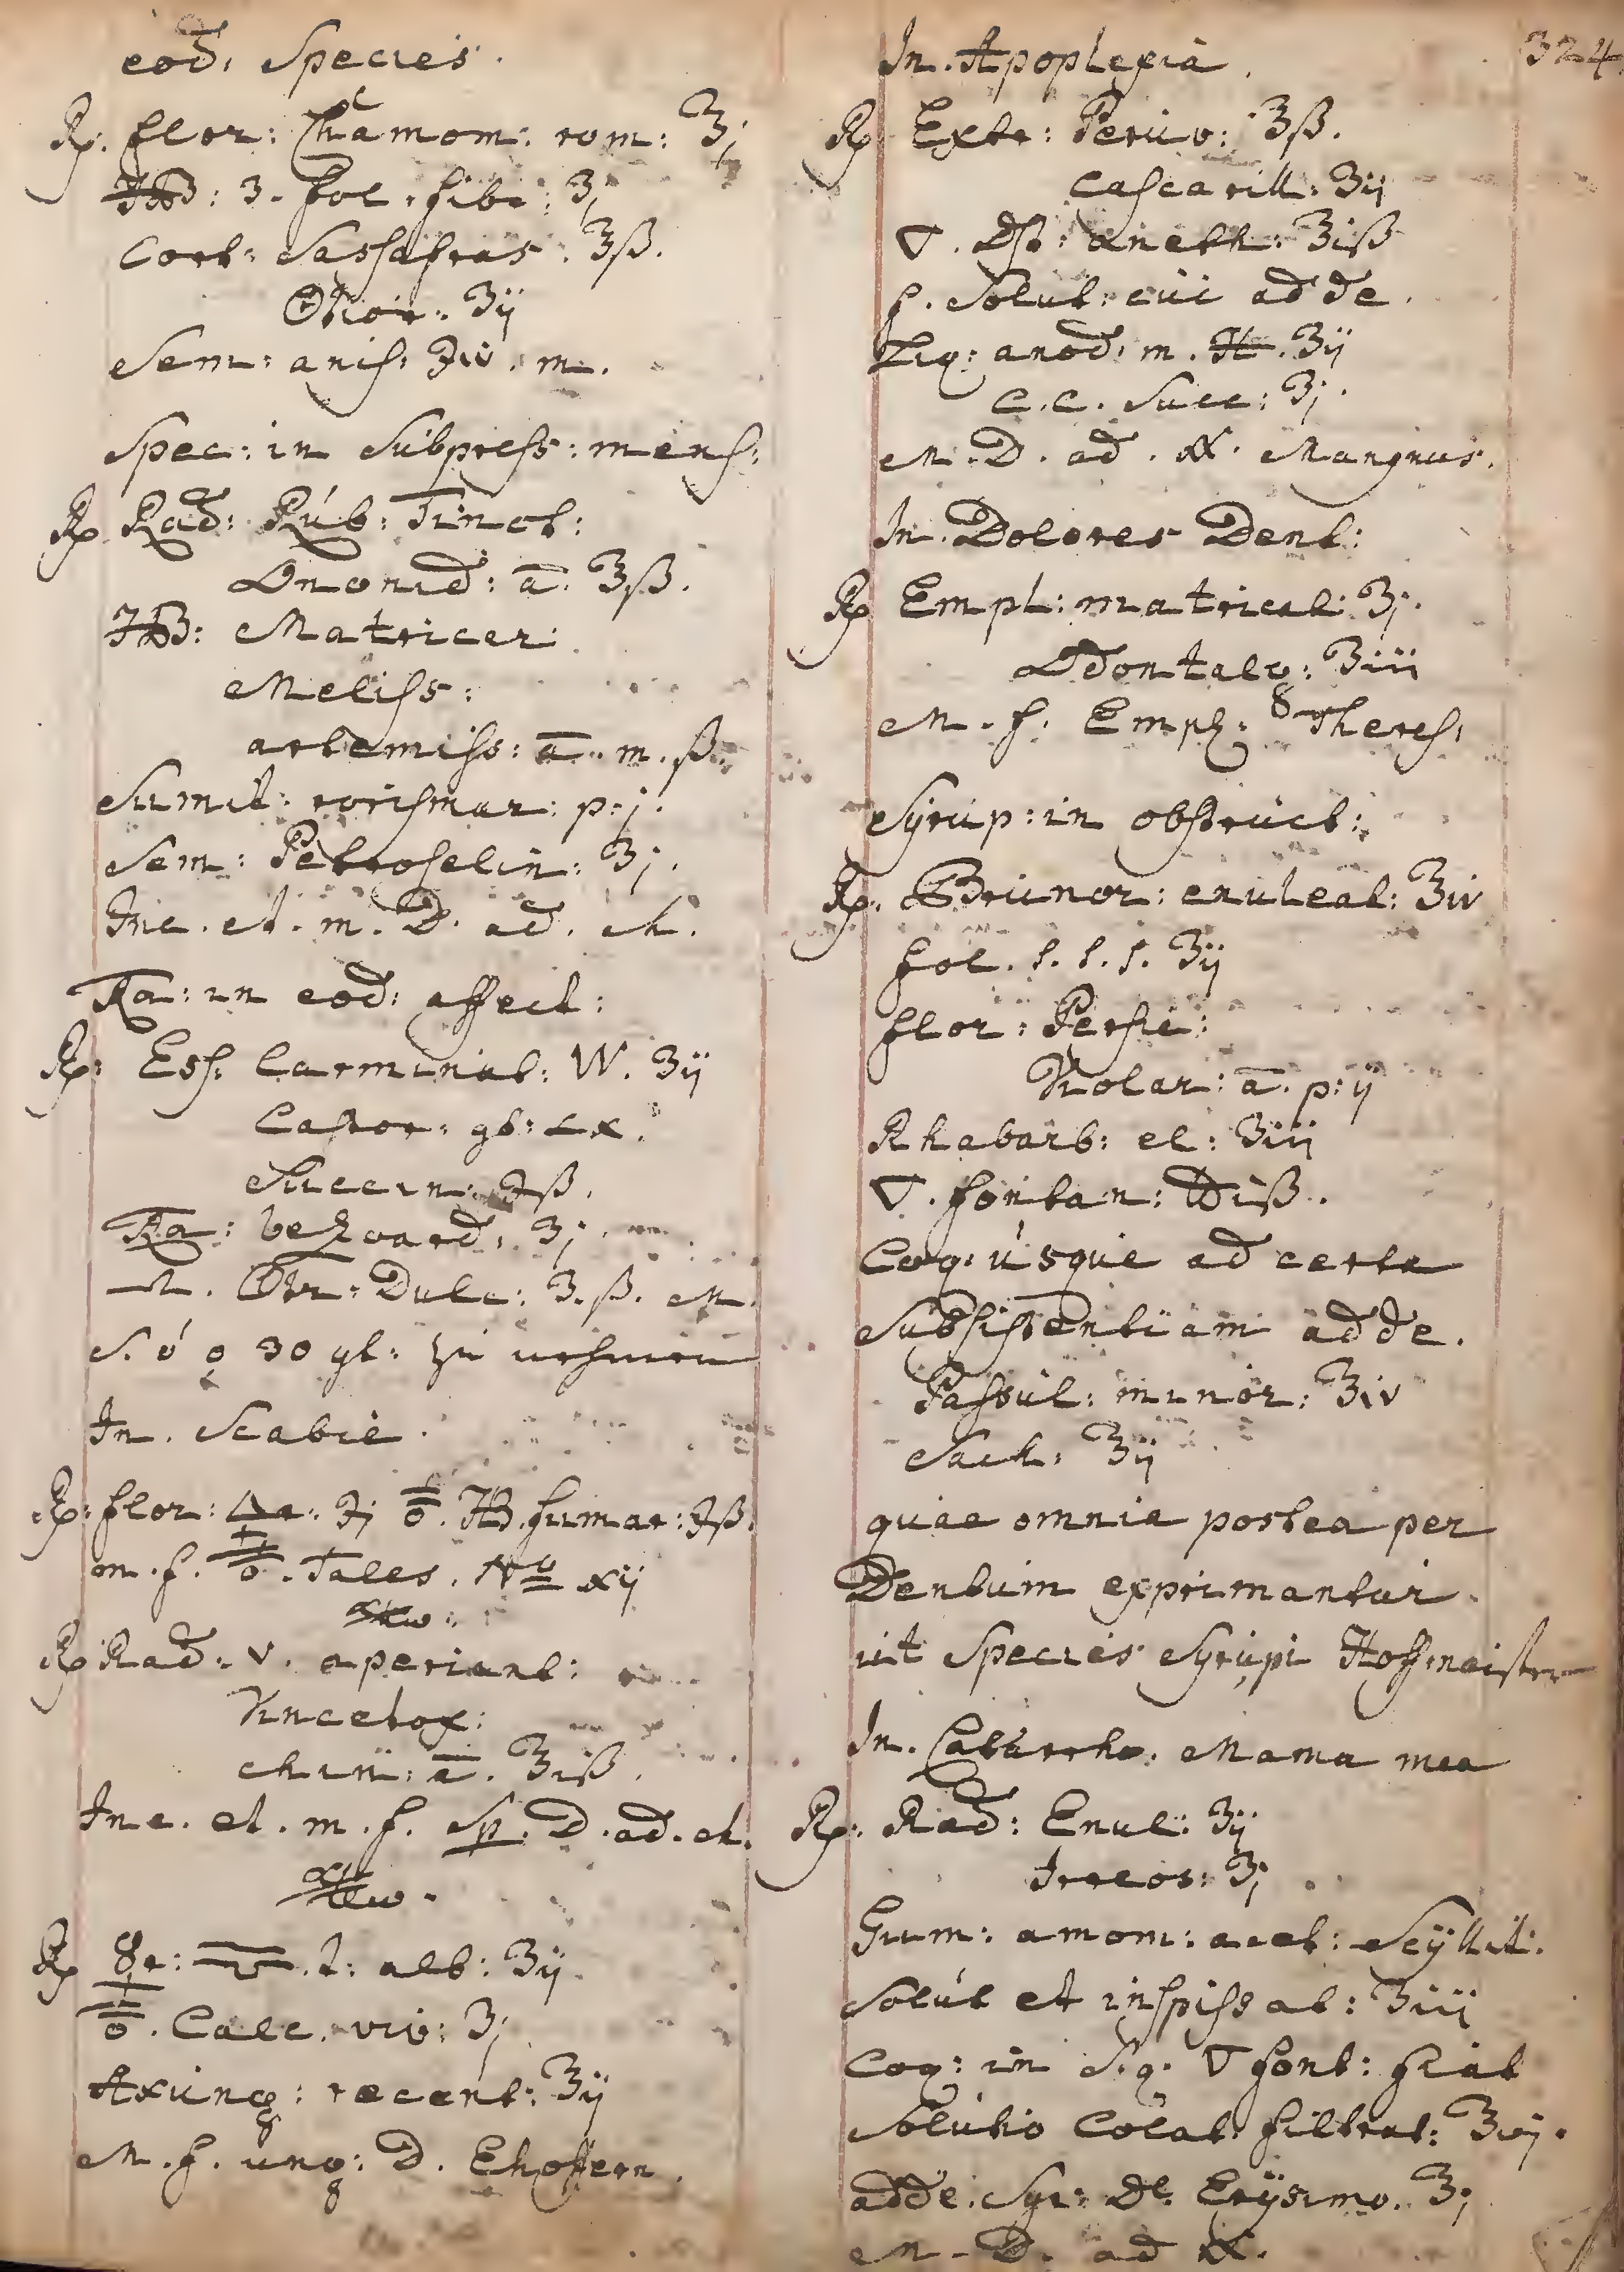 eod. Species.
Rp. flor: Chamom: rom: ʒj
HB: 3. fol. fibr: ʒj
Cort: Sassafras. ʒß.
ʒij
Sem: anis: ʒiv. m.
Spec: in Subpress: mens:
Rp Rad: Rub: Tinct:
Ononid: ā. ʒß.
HB: Matricar:
Meliss:
artemiss: ā. m. ß.
Sumit: rorismar: p:j.
Sem: Petroselin: ʒj.
Inc. et. m. D. ad. ch.
Ra: in eod: affect:
Rp: Ess. Carminat: W. ʒij
Castor: gt: Lx.
Succin: ʒß.
Ra: bezoard. ʒj.
Dulc: ʒ.ß. M.
30 gt: zu nehmen
In. Scabie.
Rp: flor: 🜍a: ʒj HB. fumar: ʒß.
m. f. Tales. No xij
Rp Rad: V. aperient:
Vincetox:
chin: ā. ʒiß.
Inc. et. m. f. Sp. D. ad. ch.
Rp alb: ʒij
Calc. viv: ʒj
Axung: recent: ʒij
M. f. ung: D. Ehoffern.
324
In. Apoplexia.
Rp Extr: Peruv: ʒß.
Cascarill: ʒij
▽. Dst: aneth: ʒiß
f. Solut: cui adde.
Liq: anod: m. H. ʒij
C.C. Succ: ʒj.
M. D. ad. Mangnus.
In. Dolores Dent:
Rp Empl: matrical: ʒj.
Odontalg: ʒiii
M. f. Empl: Theres.
Syrup: in obstruct:
Rp. Prunor: enuleat: ʒiv
fol. s. s. s. ʒij
flor: Persic:
Violar: ā. p:ij
Rhabarb: el: ʒiij
▽. fontan: ℔iß.
Coq. usque ad certe
Subsistentiam adde.
Passul: minor: ʒiv
Sach: ʒij
quae omnia postea per
Dentum exprimantur
ut Species Syrupi Hoffmeistern
In. Catarrho. Mama mea
Rp. Rad: Enul: ʒij
Ireos: ʒj
Gum: amom: acet: Scyllit:
Solut et inspissat: ʒiij
Coq: in S.q. ▽ font: fiat
Solutio Colat. filtrat: ʒvj.
adde. Syr: De. Erysimo. ʒj
M. D. ad